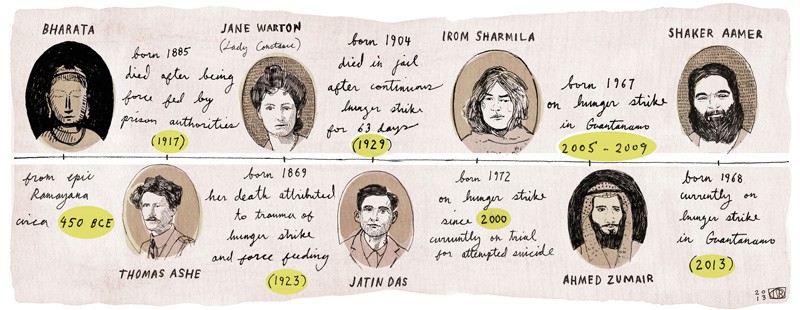 BHARATA
from epic
Ramayana
circa 450 BCE
born 1885
died after being
force fed by
prison authorities
(1917)
THOMAS ASHE
JANE WARTON
(Lady Constance)
born 1869
her death attributed
to trauma of
hunger strike
and force feeding
(1923)
born 1904
died in jail
after continuous
hunger strike
for 63 days
(1929)
JATIN DAS
IROM SHARMILA
born 1972
on hunger strike
since 2000
currently on trial
for attempted suicide
born 1967
on hunger strike
in Guantanamo
2005 - 2009
AHMED ZUMAIR
SHAKER AAMER
born 1968
currently on
hunger strike
in Guantanamo
(2013)
20
13